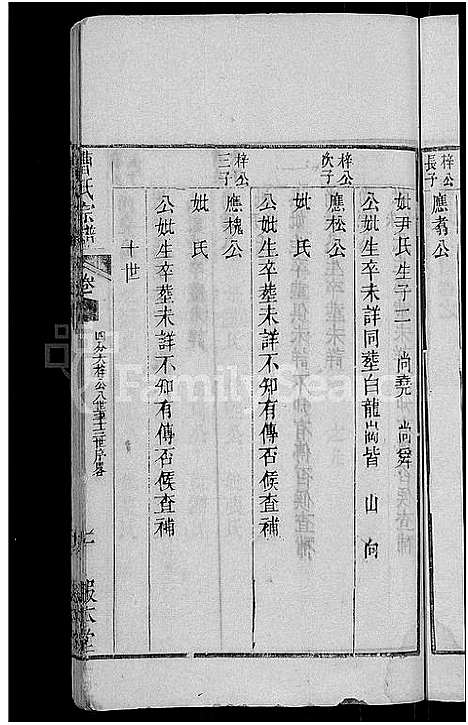 梓公長子
應翥公
妣尹氏生子二 尚堯 尚舜
公妣生卒未詳同塟白龍崗皆 山 向
梓公次子
應松公
妣氏
公妣生卒塟未詳不知有傳否候查補
梓公三子
應槐公
妣氏
公妣生卒塟未詳不知有傳否候查補
十世
曹氏宗譜
FamilySearch